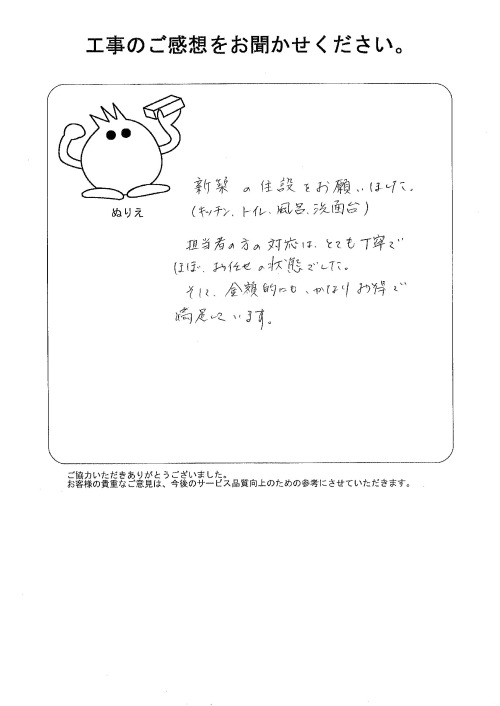 工事のご感想をお聞かせください。
ぬりえ
新築の住設をお願いしました。
(キッチン、トイレ、風呂、洗面台)
担当者の方の対応は、とても丁寧で
ほぼ、お任せの状態でした。
そして、金額的にも、かなりお得で
満足しています。
ご協力いただきありがとうございました。
お客様の貴重なご意見は、今後のサービス品質向上のための参考にさせていただきます。